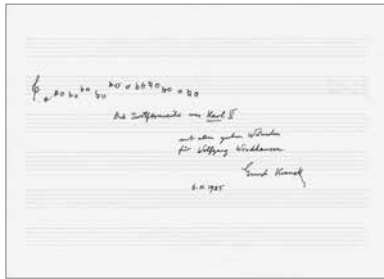 Die Zwölftonreihe aus Karl V
mit allen guten Wünschen
für Wolfgang Windhausen
Ernst Krenek
1985